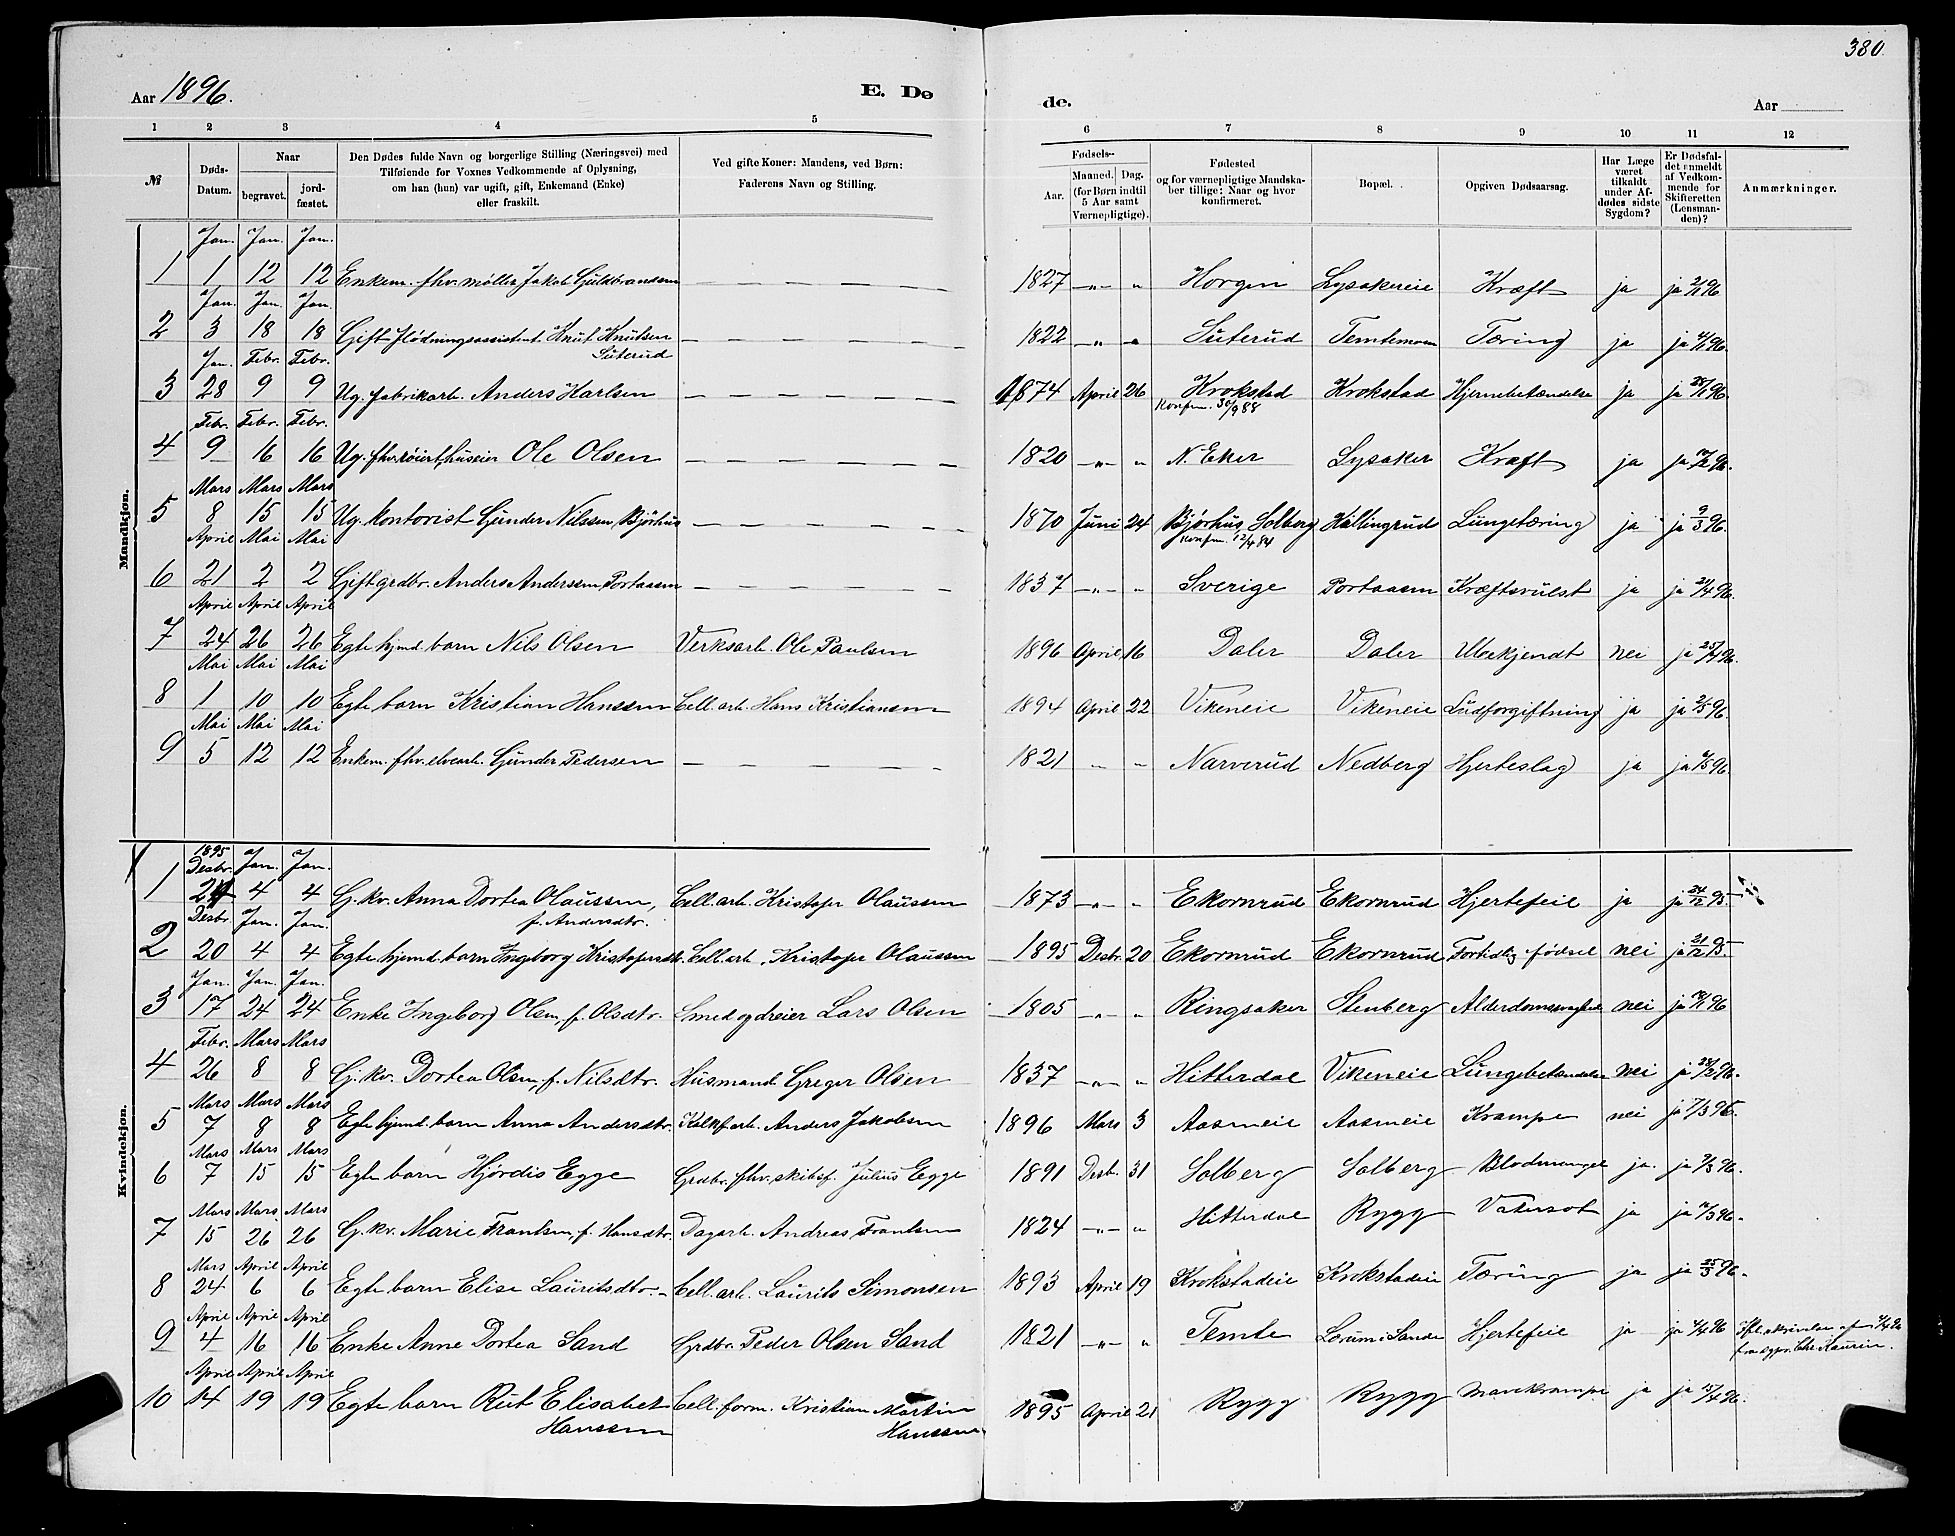 380.
Aar 1896. E. Dø de. Aar
1 2 3 4 5 6 7 8 9 10 11 12
№ Døds-Datum. Naar begravet. jord-fæstet. Den Dødes fulde Navn og borgerlige Stilling (Næringsvei) med Tilføiende for Voxnes Vedkommende af Oplysning, om han (hun) var ugift, gift, Enkemand (Enke) eller fraskilt. Ved gifte Koner: Mandens, ved Børn: Faderens Navn og Stilling. Fødsels- Aar. Maaned. Dag. (for Børn indtil 5 Aar samt Værnepligtige). Fødested og for værnepligtige Mandska-ber tillige: Naar og hvor konfirmeret. Bopæl. Opgiven Dødsaarsag. Har Læge været tilkaldt under Af-dødes sidste Sygdom? Er Dødsfal-det anmeldt af Vedkom-mende for Skifteretten (Lensman-den)? Anmærkninger.
Mandkjøn.
Jan. Jan. Jan.
1 1 12 12 Enkem. fhv. møller Jakob Guldbrandsen — — — — — 1827 —„— „ Horgen Lysakereie Kræft ja ja 2/1 96
Jan. Jan. Jan.
2 3 18 18 Gift flødningsassistent Knut Knutsen Suterud — — — — — 1822 —„— „ Suterud Temtemoen Tæring ja ja 4/1 96.
Jan. Febr. Febr.
3 28 9 9 Ug. fabrikarb. Anders Karlsen — — — — — 1874 April 26 Krokstad Krokstad Hjernebetændelse ja ja 28/1 96.
Konfirm. 30/9 88
Febr. Febr. Febr.
4 9 16 16 Ug. fhv. røiert, huseier Ole Olsen — — — — — 1820 —„— „ N. Eker Lysaker Kræft ja ja 10/2 96.
Mars Mars Mars
5 8 15 15 Ug. kontorist Gunder Nilssen, Bjørhus — — — — — 1870 Juni 24 Bjørhus, Solberg Hullingrud Lungetæring ja ja 9/3 96.
Konfirm. 12/4 84
April Mai Mai
6 21 2 2 Gift grdbr. Anders Anderssen Portaasen — — — — — 1837 —„— „ Sverige Portaasen Kræftsvulst ja ja 21/4 96.
April April April
7 24 26 26 Egte hjemd. barn Nils Olsen Verksarb. Ole Paulsen 1896 April 16 Daler Daler Ubekjendt nei ja 25/4 96.
Mai Mai Mai
8 1 10 10 Egte barn Kristian Hanssen Cell. arb. Hans Kristiansen 1894 April 22 Vikeneie Vikeneie Ludforgiftning ja ja 2/5 96.
Mai Mai Mai
9 5 12 12 Enkem. fhv. elvearb. Gunder Pedersen — — — — — 1821 „ „ Narverud Nedberg Hjerteslag ja ja 6/5 96.
Kvindekjøn.
1895
Desbr. Jan. Jan.
1 21 4 4 G. kv. Anna Dortea Olaussen, Cell. arb. Kristofer Olaussen 1873 —„— „ Ekornrud Ekornrud Hjertefeil ja ja 24/12 95.
f. Andersdtr.
Desbr. Jan. Jan.
2 20 4 4 Egte hjemd. barn Ingeborg Kristofersdtr. Cell. arb. Kristofer Olaussen 1895 Desbr. 20 Ekornrud Ekornrud Fortidlig fødsel nei ja 21/12 95.
Jan. Jan. Jan.
3 17 24 24 Enke Ingeborg Olsen, f. Olsdtr. Smed og dreier Lars Olsen 1805 —„— „ Ringsaker Stenberg Alderdomssvaghed nei ja 18/1 96
Febr. Mars Mars
4 26 8 8 G. kv. Dortea Olsen, f. Nilsdtr. Husmand Greger Olsen 1837 —„— „ Hitterdal Vikeneie Lungebetændelse nei ja 28/2 96.
Mars Mars Mars
5 7 8 8 Egte hjemd. barn Anna Andersdtr. Kalkf. arb. Anders Jakobsen 1896 Mars 3 Aasmeie Aasmeie Krampe nei ja 7/3 96.
Mars Mars Mars
6 7 15 15 Egte barn Hjørdis Egge Grdbr. fhv. skibsf. Julius Egge 1891 Desb. 31 Solberg Solberg Blodmangel ja. ja 9/3 96.
Mars Mars Mars
7 15 26 26 G. kv. Marie Frantsen, f. Hansdtr. Dagarb. Andreas Frantsen 1824 —„— „ Hitterdal Rygg Vatersot ja ja 16/3 96.
Mars April April
8 24 6 6 Egte barn Elise Lauritsdtr. Cell. arb. Laurits Simonsen 1893 April 19 Krokstadeie Krokstadeie Tæring ja ja 25/3 96.
April April April
9 4 16 16 Enke Anne Dortea Sand Grdbr. Peder Olsen Sand 1821 —„— „ Temte Lorum i Sande Hjertefeil ja ja 4/4 96
April April April
10 14 19 19 Egte barn Rut Elisabet Hanssen Cell. form. Kristian Martin Hanssen 1895 April 21 Rygg Rygg Mavekrampe ja ja 15/4 96.